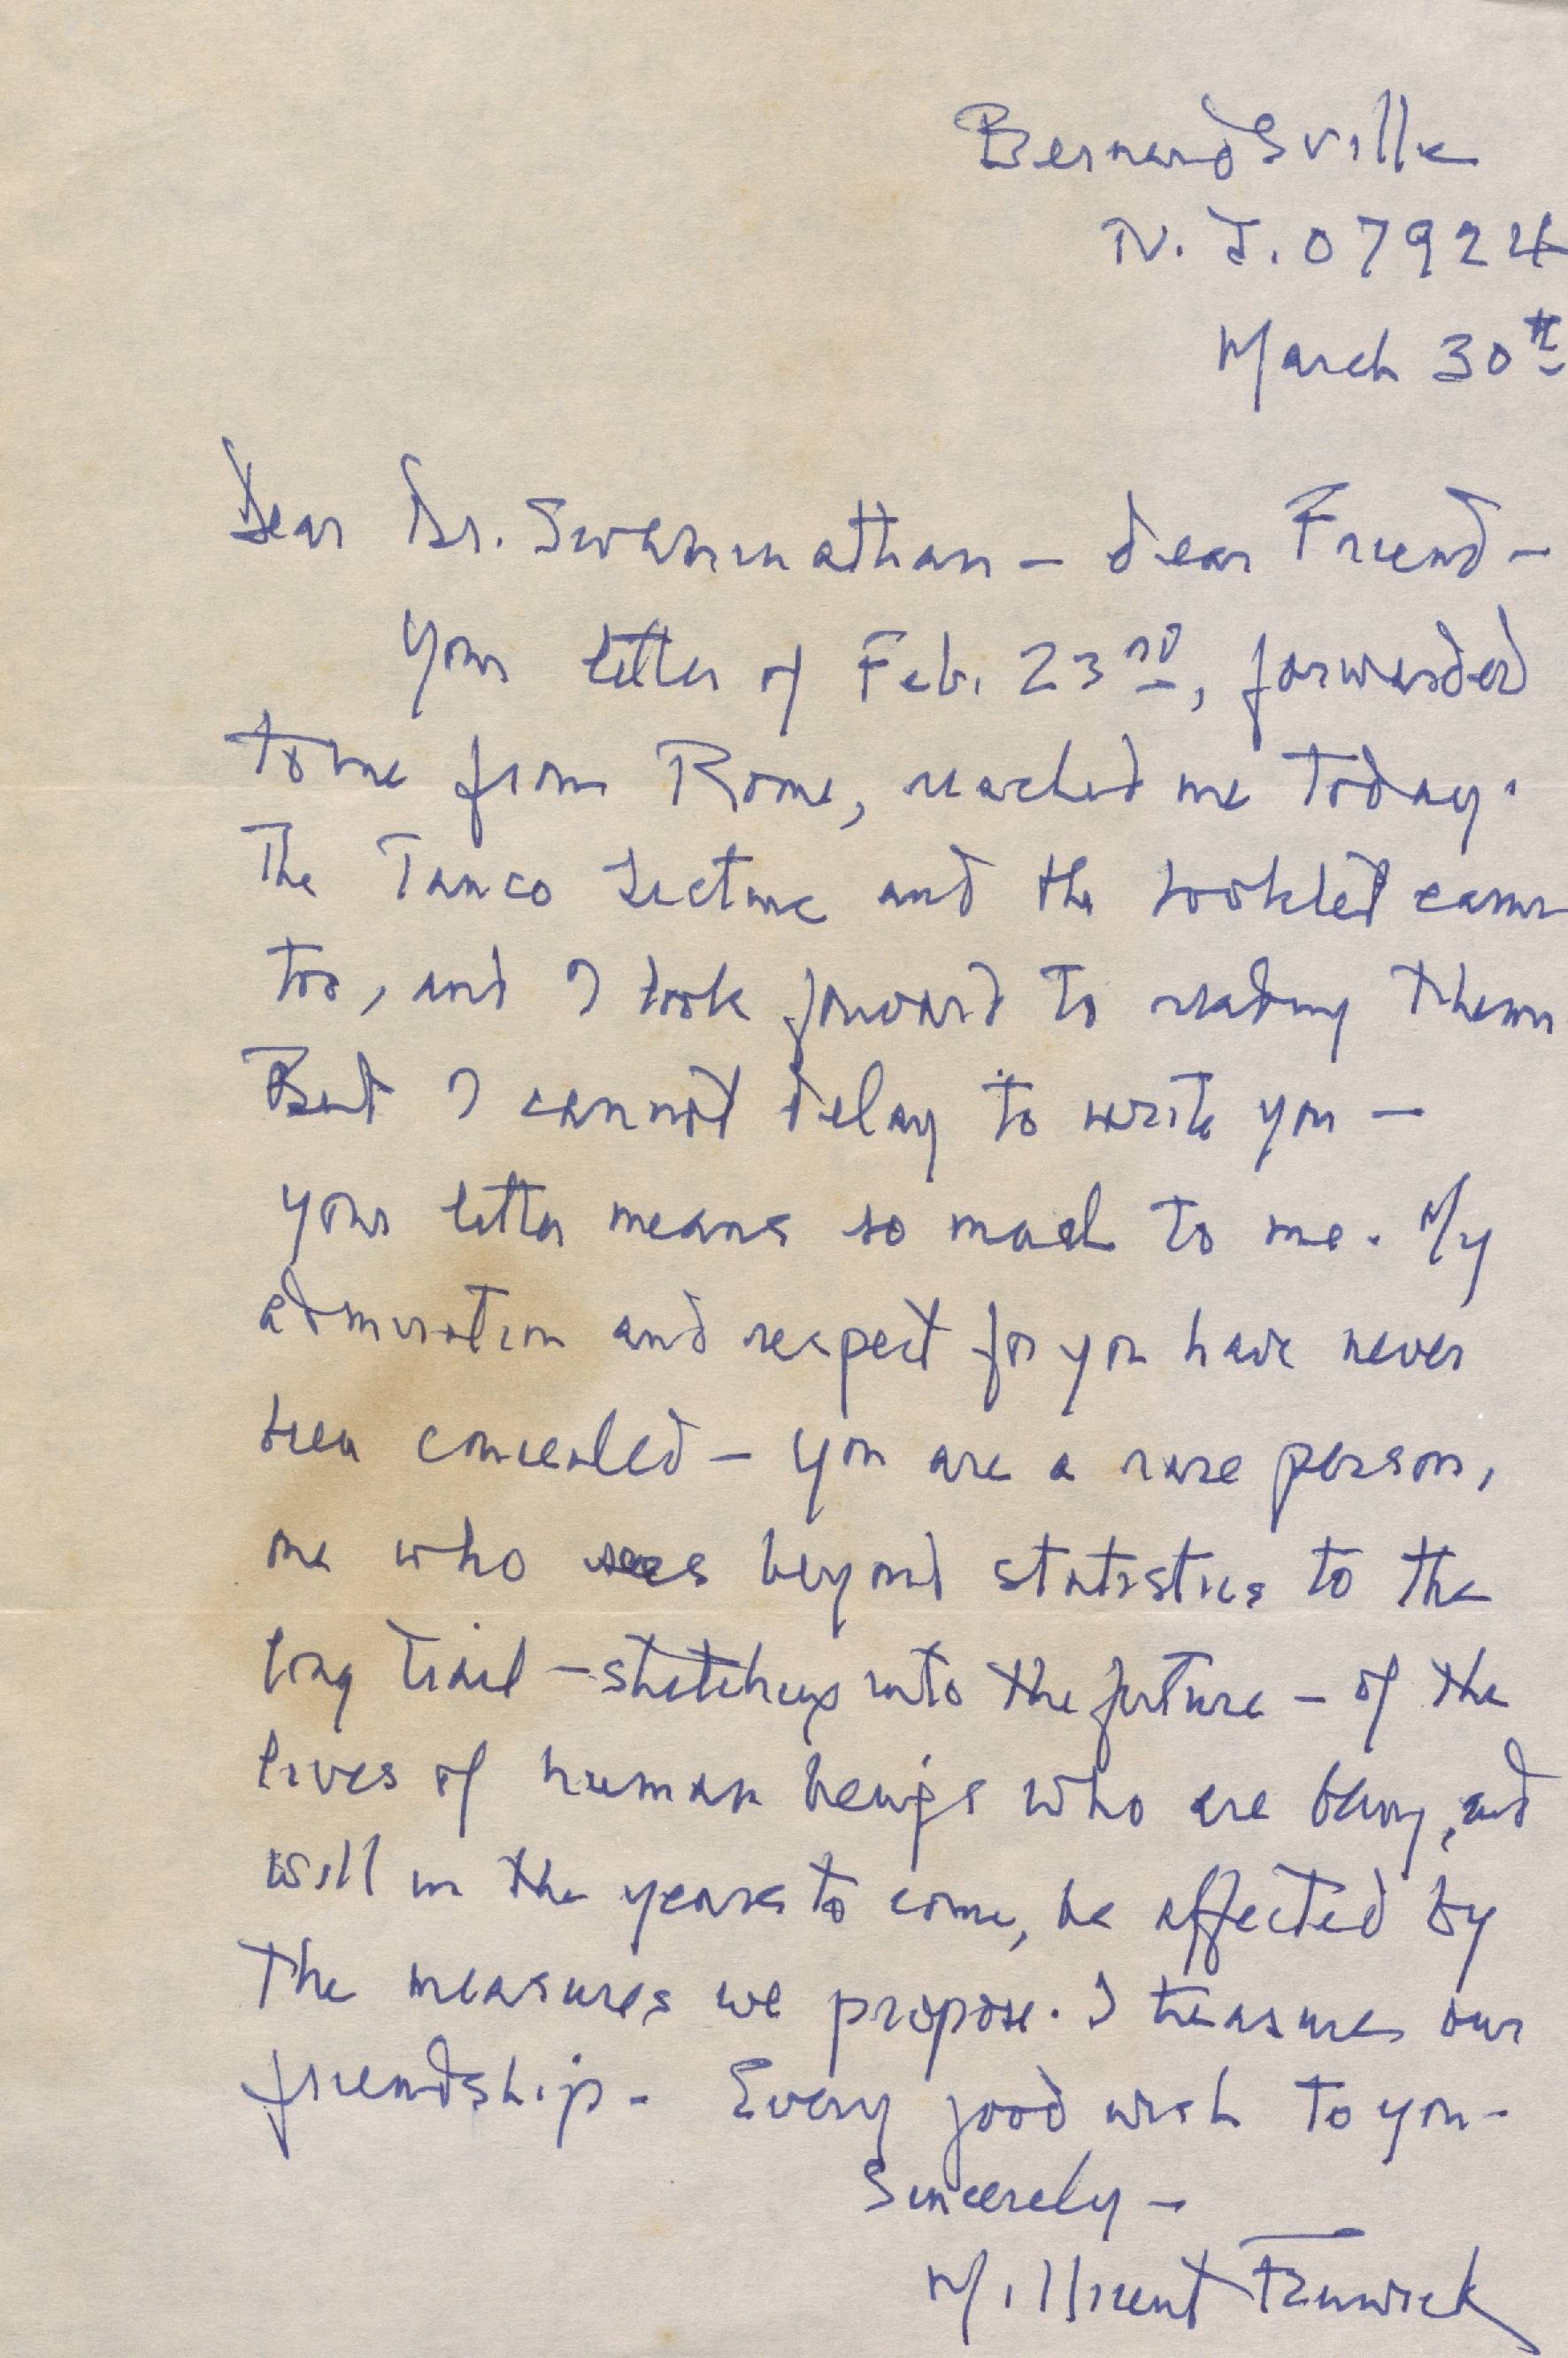 Bernardsville
N. J. 07924
March 30th
Dear Dr. Swaminathan – dear Friend –
Your letter of Feb. 23rd, forwarded
to me from Rome, reached me today.
The Tanco Lecture and the booklet came
too, and I look forward to reading them
But I cannot delay to write you –
your letter means so much to me. My
admiration and respect for you have never
been concealed – you are a rare person,
one who sees beyond statistics to the
long trail – stretching into the future – of the
lives of human beings who are being, and
will in the years to come, be affected by
the measures we propose. I treasure our
friendship. Every good wish to you –
Sincerely –
Millicent Fenwick